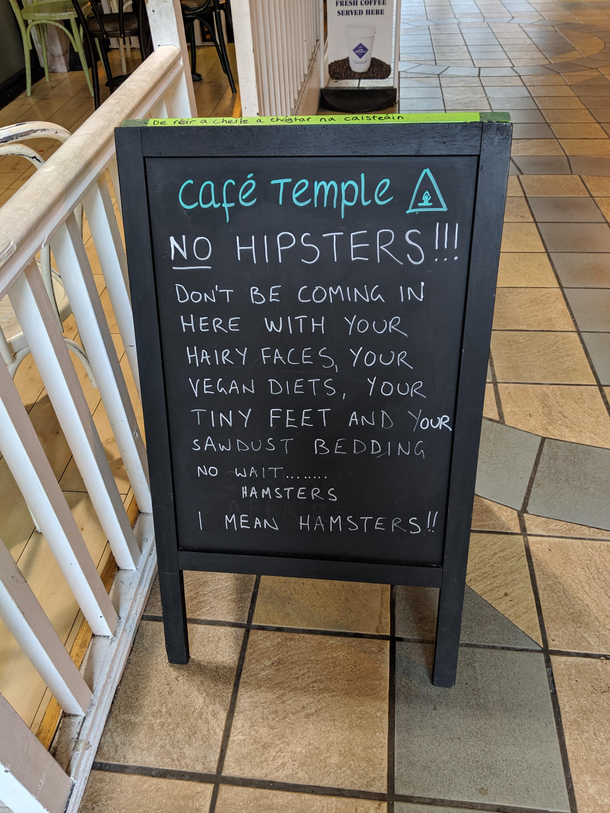 FRESH COFFEE
SERVED HERE
De réir a chéile a thógtar na caisleáin
Café Temple
NO HIPSTERS!!!
DON'T BE COMING IN
HERE WITH YOUR
HAIRY FACES, YOUR
VEGAN DIETS, YOUR
TINY FEET AND YOUR
SAWDUST BEDDING
NO WAIT........
HAMSTERS
I MEAN HAMSTERS!!